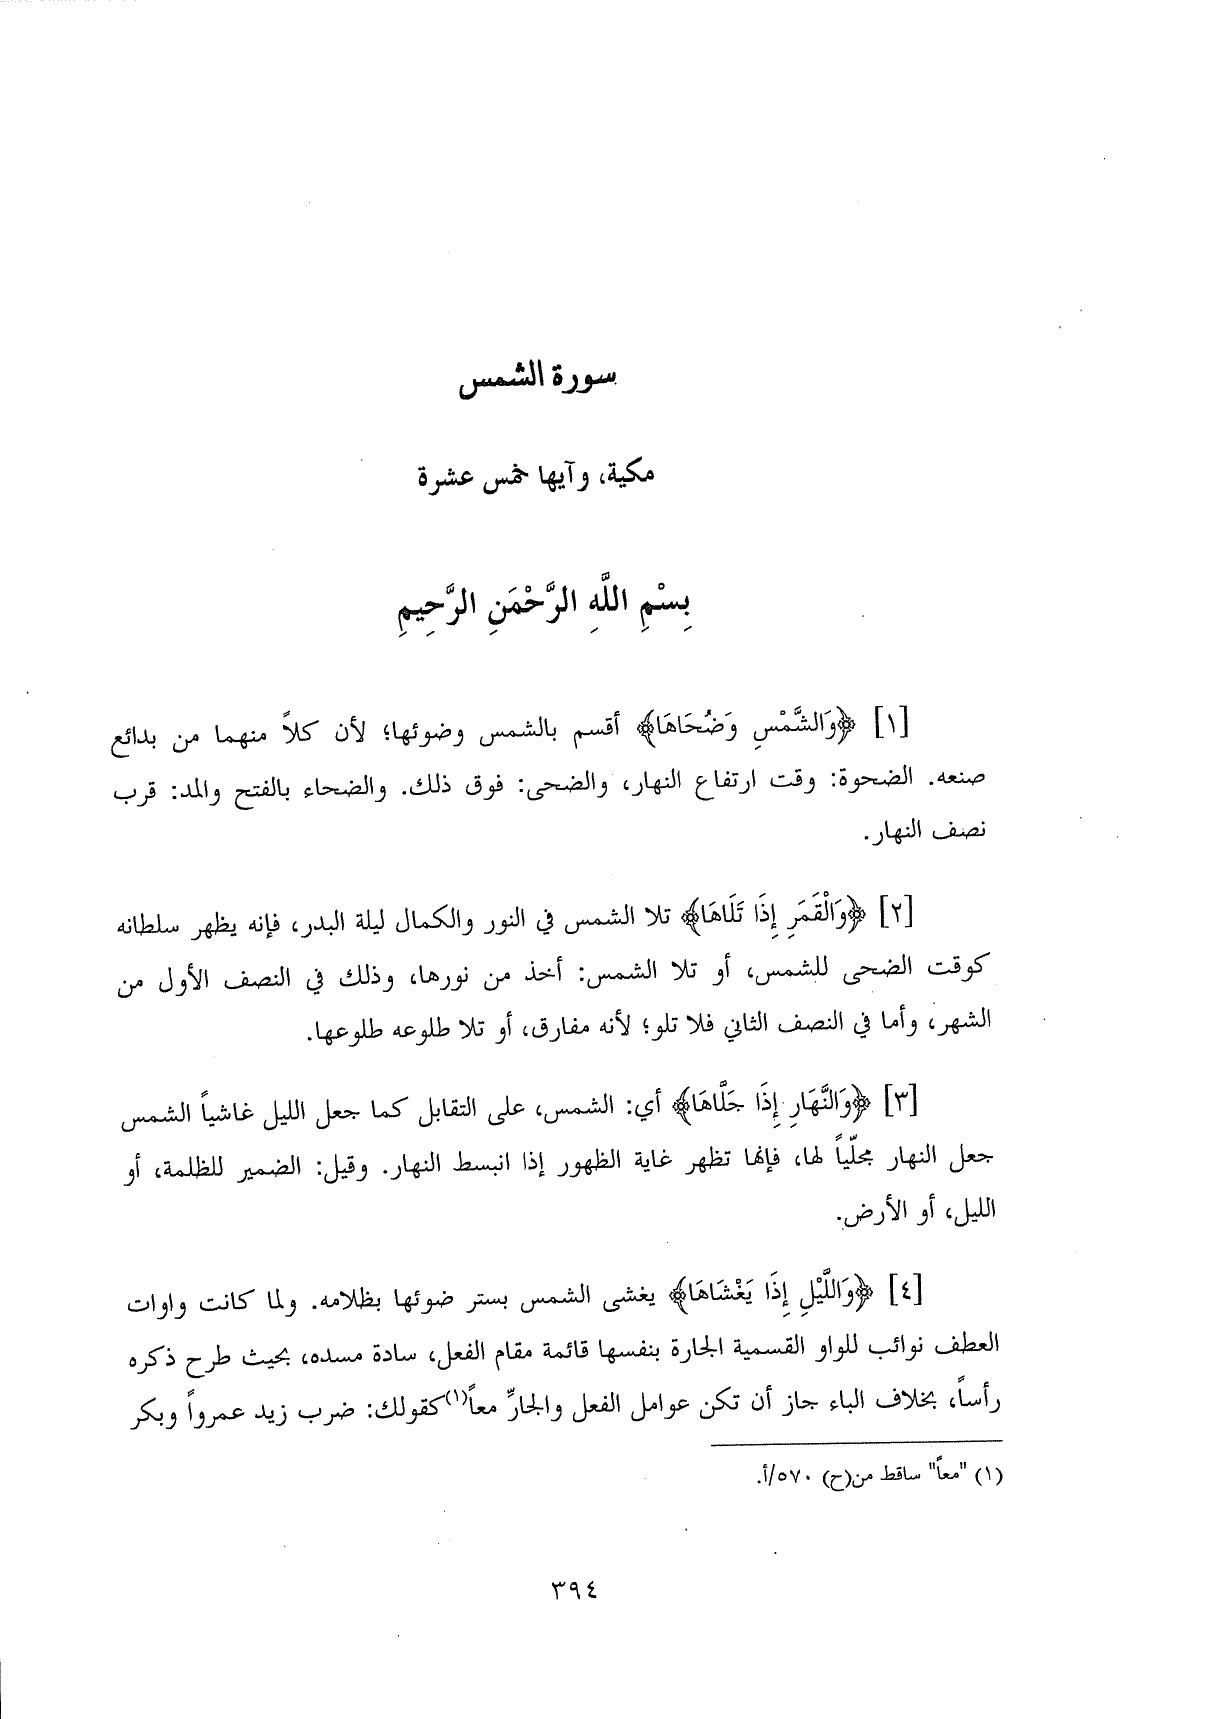 سورة الشمس
مكية، وآيها خمس عشرة
بِسْمِ اللَّهِ الرَّحْمَنِ الرَّحِيمِ
[١] ﴿وَالشَّمْسِ وَضُحَاهَا﴾ أقسم بالشمس وضوئها؛ لأن كلاً منهما من بدائع
صنعه. الضحوة: وقت ارتفاع النهار، والضحى: فوق ذلك. والضحاء بالفتح والمد: قرب
نصف النهار.
[٢] ﴿وَالْقَمَرِ إِذَا تَلَاهَا﴾ تلا الشمس في النور والكمال ليلة البدر، فإنه يظهر سلطانه
كوقت الضحى للشمس، أو تلا الشمس: أخذ من نورها، وذلك في النصف الأول من
الشهر، وأما في النصف الثاني فلا تلو؛ لأنه مفارق، أو تلا طلوعه طلوعها.
[٣] ﴿وَالنَّهَارِ إِذَا جَلَّاهَا﴾ أي: الشمس، على التقابل كما جعل الليل غاشياً الشمس
جعل النهار مجلّياً لها، فإنها تظهر غاية الظهور إذا انبسط النهار. وقيل: الضمير للظلمة، أو
الليل، أو الأرض.
[٤] ﴿وَاللَّيْلِ إِذَا يَغْشَاهَا﴾ يغشى الشمس بستر ضوئها بظلامه. ولما كانت واوات
العطف نوائب للواو القسمية الجارة بنفسها قائمة مقام الفعل، سادة مسده، بحيث طرح ذكره
رأساً، بخلاف الباء جاز أن تكن عوامل الفعل والجارِّ معاً(١)كقولك: ضرب زيد عمرواً وبكر
(١) "معاً" ساقط من(ح) ٥٧٠/أ.
٣٩٤